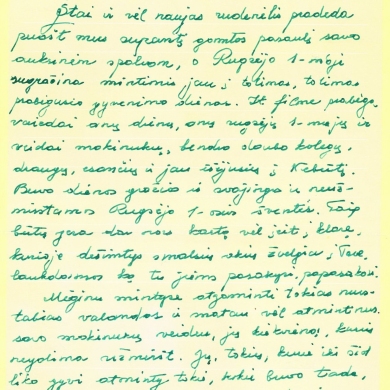 Štai ir vėl naujas rudenėlis pradeda
puošti mus supantį gamtos pasaulį savo
auksinėm spalvom, o Rugsėjo 1-moji
sugrąžina mintimis jau į tolimas, tolimas
prabėgusio gyvenimo dienas. It filme prabėga
vaizdai anų dienų, anų rugsėjų 1-mųjų ir
veidai mokinukų, bendro darbo kolegų,
draugų, esančių ir jau išėjusių į Nebūtį.
Buvo dienos gražios ir svajingos ir neuž-
mirštamos Rugsėjo 1-osios šventės. Taip
būtų gera dar nors kartą vėl įeit į klasę,
kurioje dešimtys smalsių akių žvelgia į Tave,
laukdamos ką tu jiems pasakysi, papasakosi.
Mėginu mintyse atgaminti tokias nuos-
tabias valandas ir matau vėl atmintinus
savo mokinukų veidus, jų kiekvieno, kurių
neįdoma užmiršt. Jų, tokių, kurie iki šiol
liko gyvi atminty tokie, kokie buvo tada,